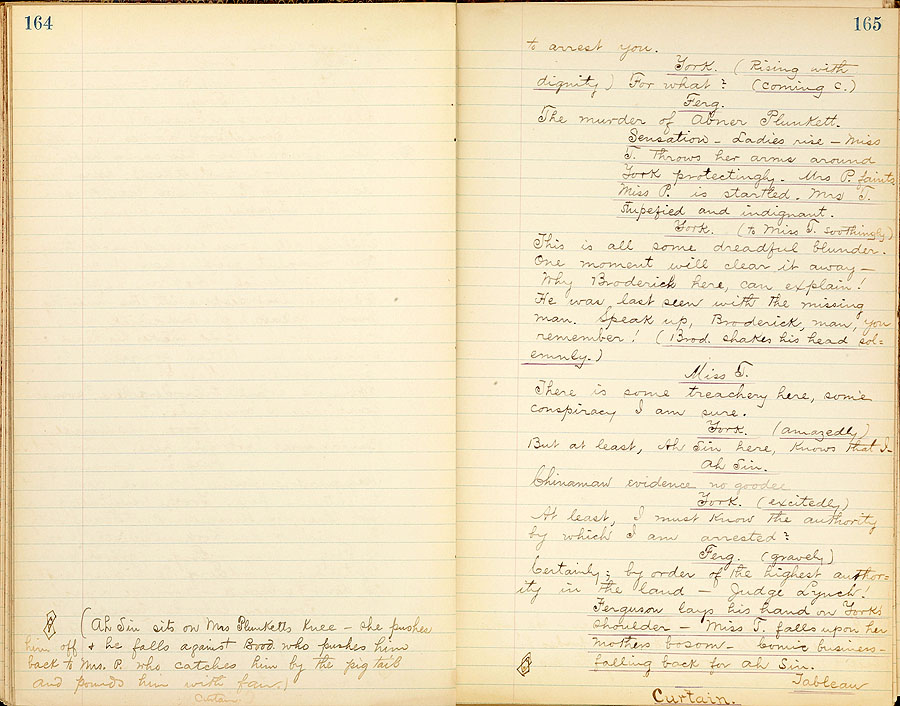 164
(Ah Sin sits on Mrs Plunketts Knee – she pushes
him off & he falls against Brod. who pushes him
back to Mrs. P. who catches him by the pig tail
and pounds him with fan.)
Curtain.
165
to arrest you.
York. (Rising with
dignity) For what? (coming C.)
Ferg.
The murder of Abner Plunkett.
Sensation – Ladies rise – Miss
T. Throws her arms around
York protectingly. Mrs P. faints
Miss P. is startled. Mrs T.
stupefied and indignant.
York. (to Miss T. soothingly)
This is all some dreadful blunder.
One moment will clear it away –
Why Broderick here, can explain!
He was last seen with the missing
man. Speak up, Broderick, man, you
remember! (Brod. shakes his head sol=
emnly.)
Miss T.
There is some treachery here, some
conspiracy I am sure.
York. (amazedly)
But at least, Ah Sin here, Knows that I–
Ah Sin.
Chinaman evidence no goodee
York. (excitedly)
At least, I must Know the authority
by which I am arrested?
Ferg. (gravely)
Certainly; by order of the highest author=
ity in the land – Judge Lynch!
Ferguson lays his hand on York's
shoulder – Miss T. falls upon her
mothers bosom – Comic business–
falling back for Ah Sin.
Tableau
Curtain.